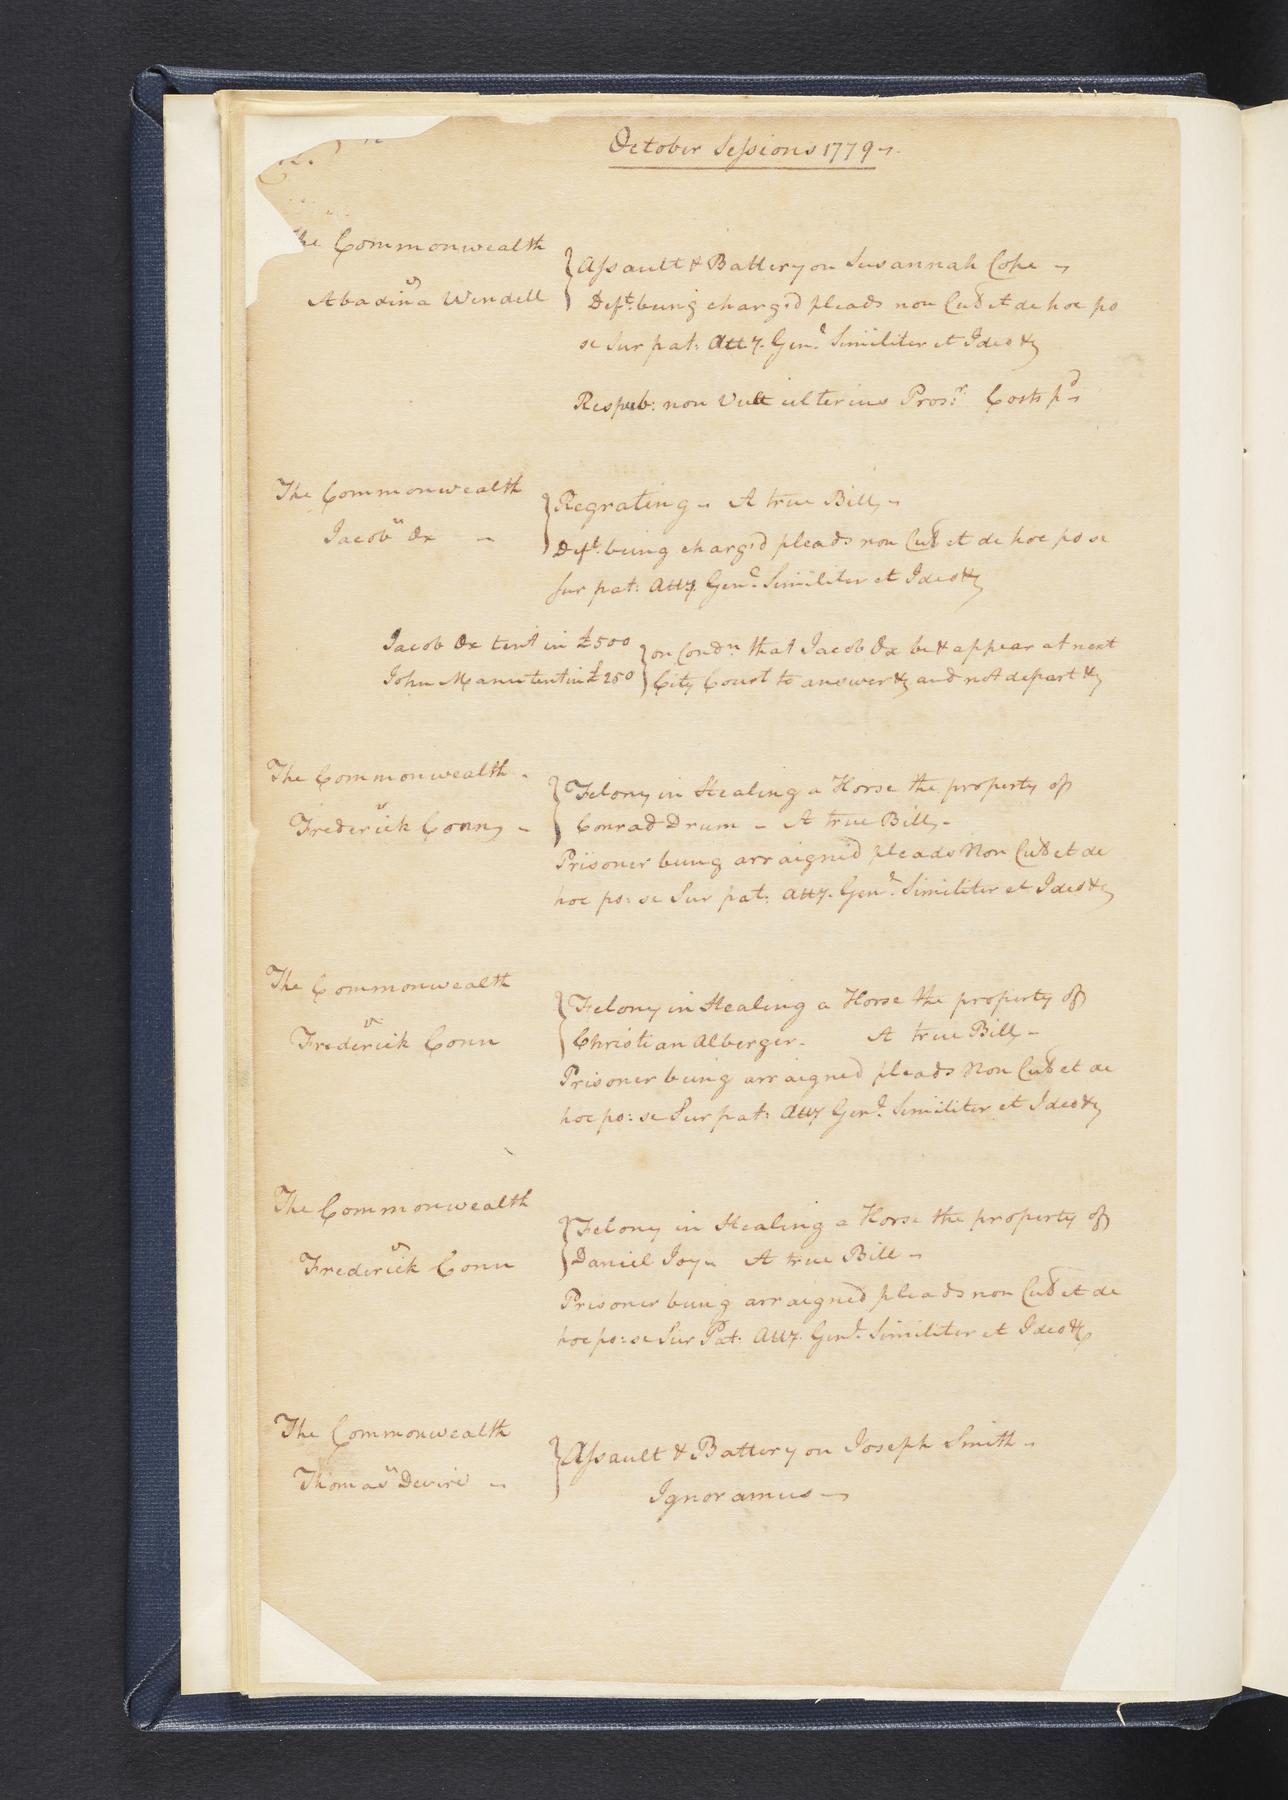 October Sessions 1779
The Commonwealth
vs
Abadina Wendell
Assault & Battery on Susannah Cope
Deft. being charg'd pleads non Cul et de hoc po
se Sur pat: Atty. Genl. Similiter et Ideo &c
Respub: non Vult ulterius Prosr. Costs pd
The Commonwealth
vs
Jacob Ox
Regrating A true Bill
Deft. being charg'd pleads non Cul et de hoc po se
sur pat: Atty. Genl. Similiter et Ideo &c
Jacob Ox tent in £500
John Manu tent in £250
on Condn. that Jacob Ox be & appear at next
City Court to answer &c and not depart &c
The Commonwealth
vs
Frederick Conn
Felony in Stealing a Horse the property of
Conrad Drum A true Bill
Prisoner being arraigned pleads Non Cul et de
hoc po: se Sur pat: Atty. Genl. Similiter et Ideo &c
The Commonwealth
vs
Frederick Conn
Felony in Stealing a Horse the property of
Christian Alberger A true Bill
Prisoner being arraigned pleads Non Cul et de
hoc po: se Sur pat: Atty Genl. Similiter et Ideo &c
The Commonwealth
vs
Frederick Conn
Felony in Stealing a Horse the property of
Daniel Joy A true Bill
Prisoner being arraigned pleads non Cul et de
hoc po: se Sur Pat: Atty. Genl. Similiter et Ideo &c
The Commonwealth
vs
Thomas Devire
Assault & Battery on Joseph Smith
Ignoramus